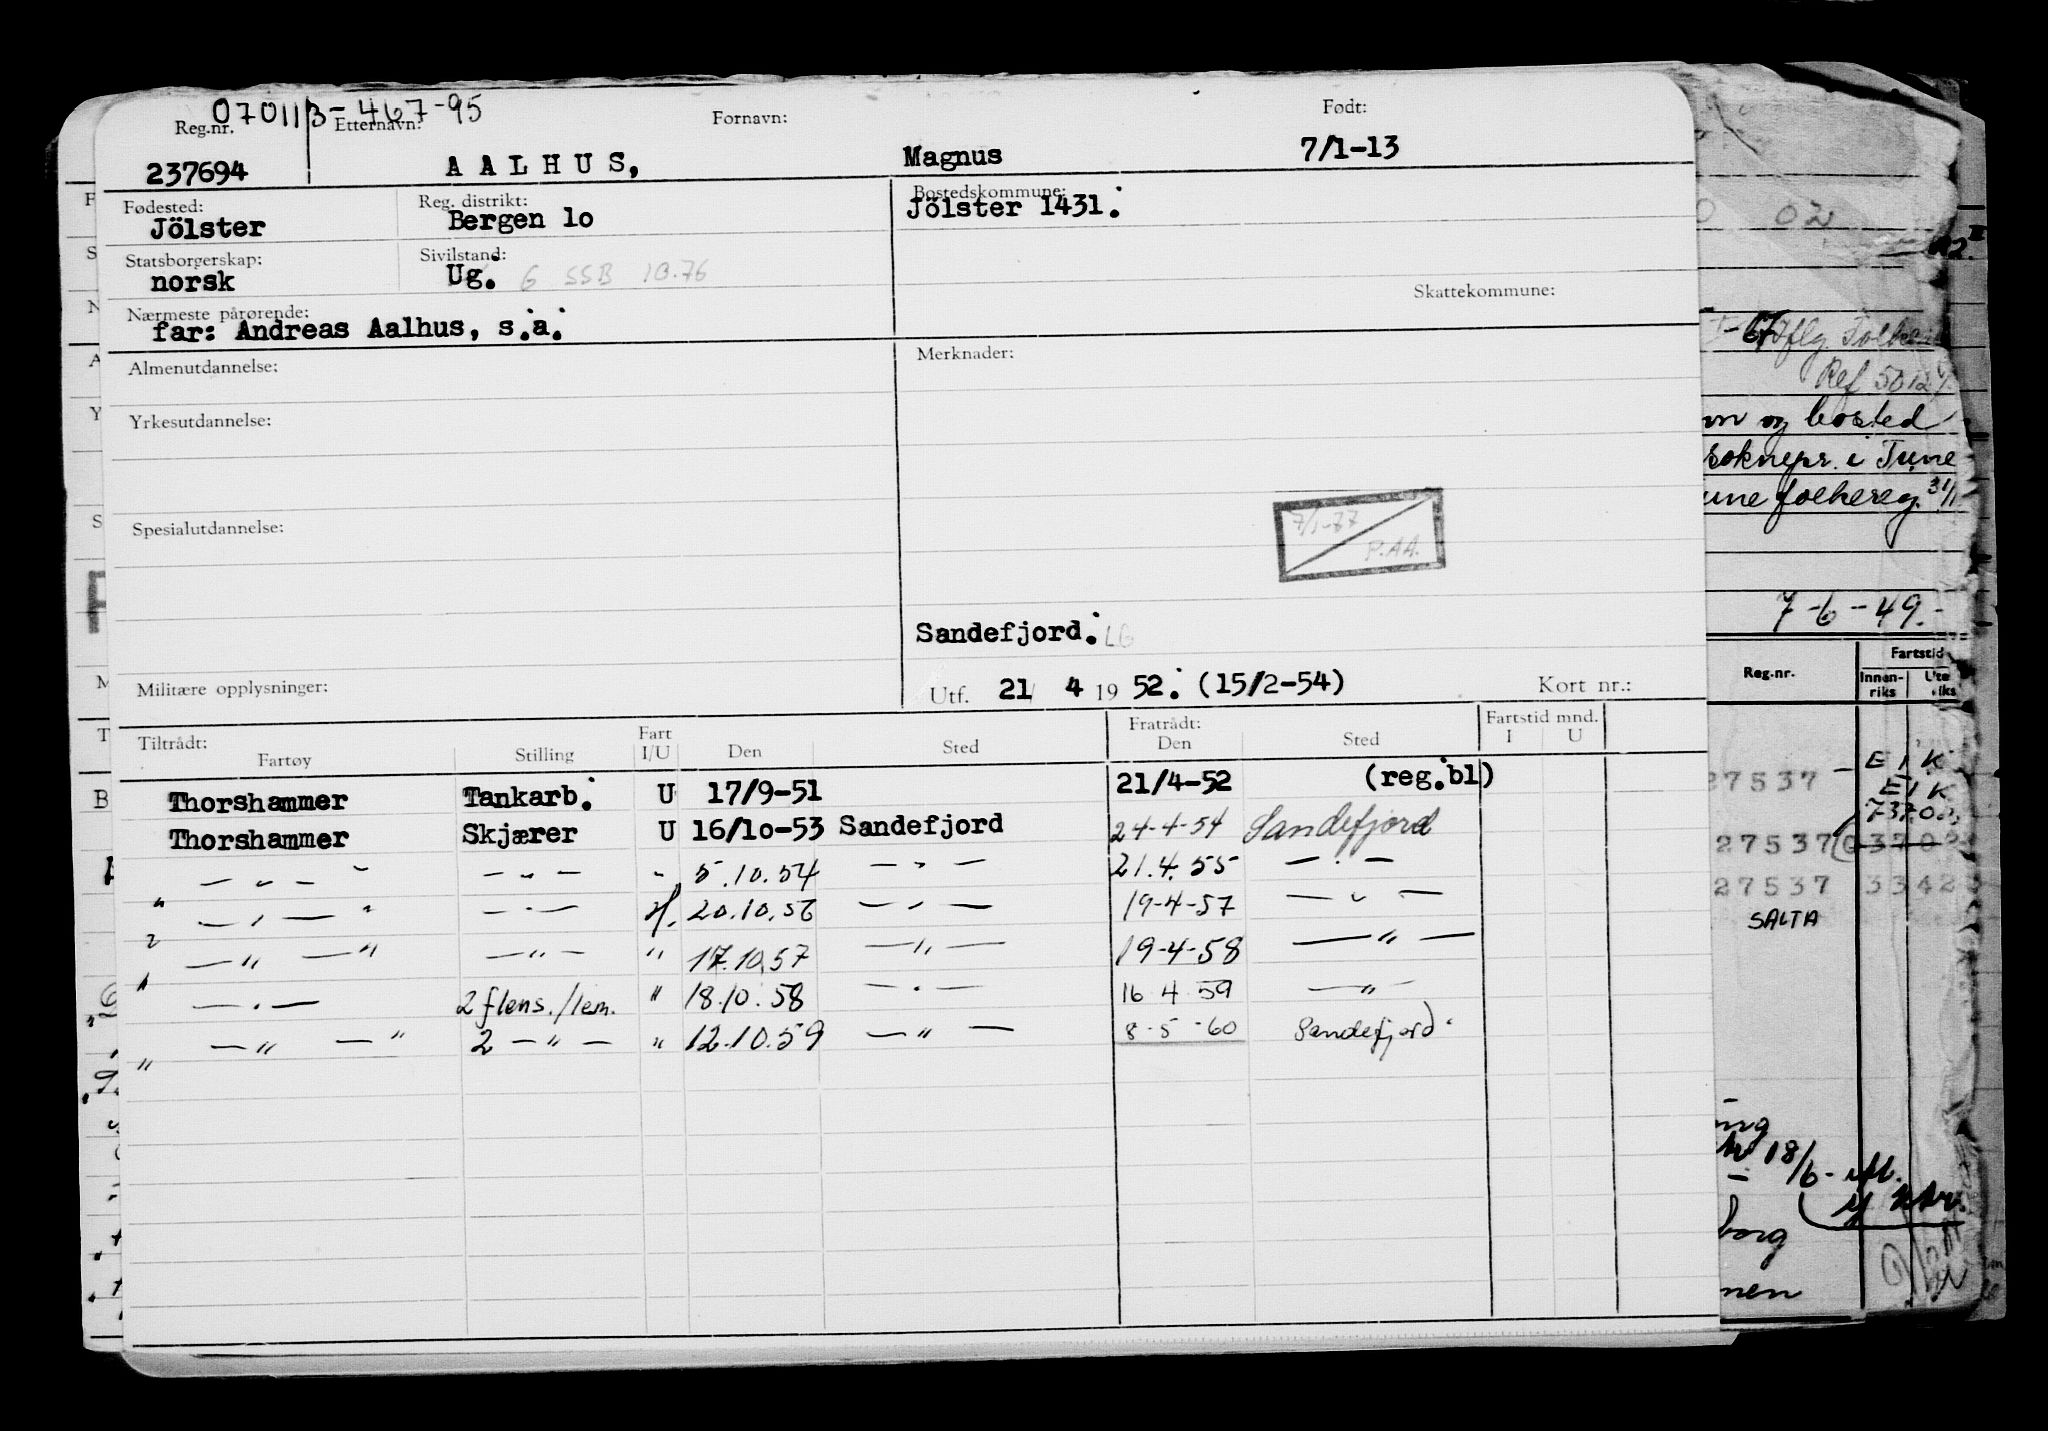 070113-467-95
Reg.nr. Etternavn: Fornavn: Født:
237694 AALHUS, Magnus 7/1-13
Fødested: Reg. distrikt: Bostedskommune:
Jölster Bergen lo Jölster 1431.
Statsborgerskap: Sivilstand:
norsk Ug. G SSB 10.76
Nærmeste pårørende: Skattekommune:
far: Andreas Aalhus, s.a.
Almenutdannelse: Merknader:
Yrkesutdannelse:
Spesialutdannelse:
7/1-77
P.AA.
Sandefjord. LG
Militære opplysninger: Utf. 21/ 4 19 52. (15/2-54) Kort nr.:
Tiltrådt: Fart Fratrådt: Fartstid mnd.
Fartøy Stilling I/U Den Sted Den Sted I U
Thorshammer Tankarb. U 17/9-51 21/4-52 (reg.bl)
Thorshammer Skjærer U 16/lo-53 Sandefjord 24-4-54 Sandefjord
— " — " — " — " 5.10.54 — " — 21.4.55 — " —
" — " — " — " — 20.10.56 — " — 19-4-57 — " —
" — " — " — " — " 17.10.57 — " — 19-4-58 — " —
" — " — 2 flens./lem. " 18.10.58 — " — 16.4.59 — " —
" — " — " 2 — " — " 12.10.59 — " — 8-5-60 Sandefjord
02
-67 iflg.
Ref
og bosted
soknepr. i Tune
folkereg. 31/1
7-6-49.-
Reg.nr. Fartstid
Innen-riks Ute
27537 — E I K
E I K
27537
27537 3342
SALTA
18/6-
borg